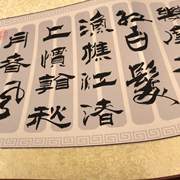 幾度
紅白髮
漁樵江渚
上慣看秋
月春風